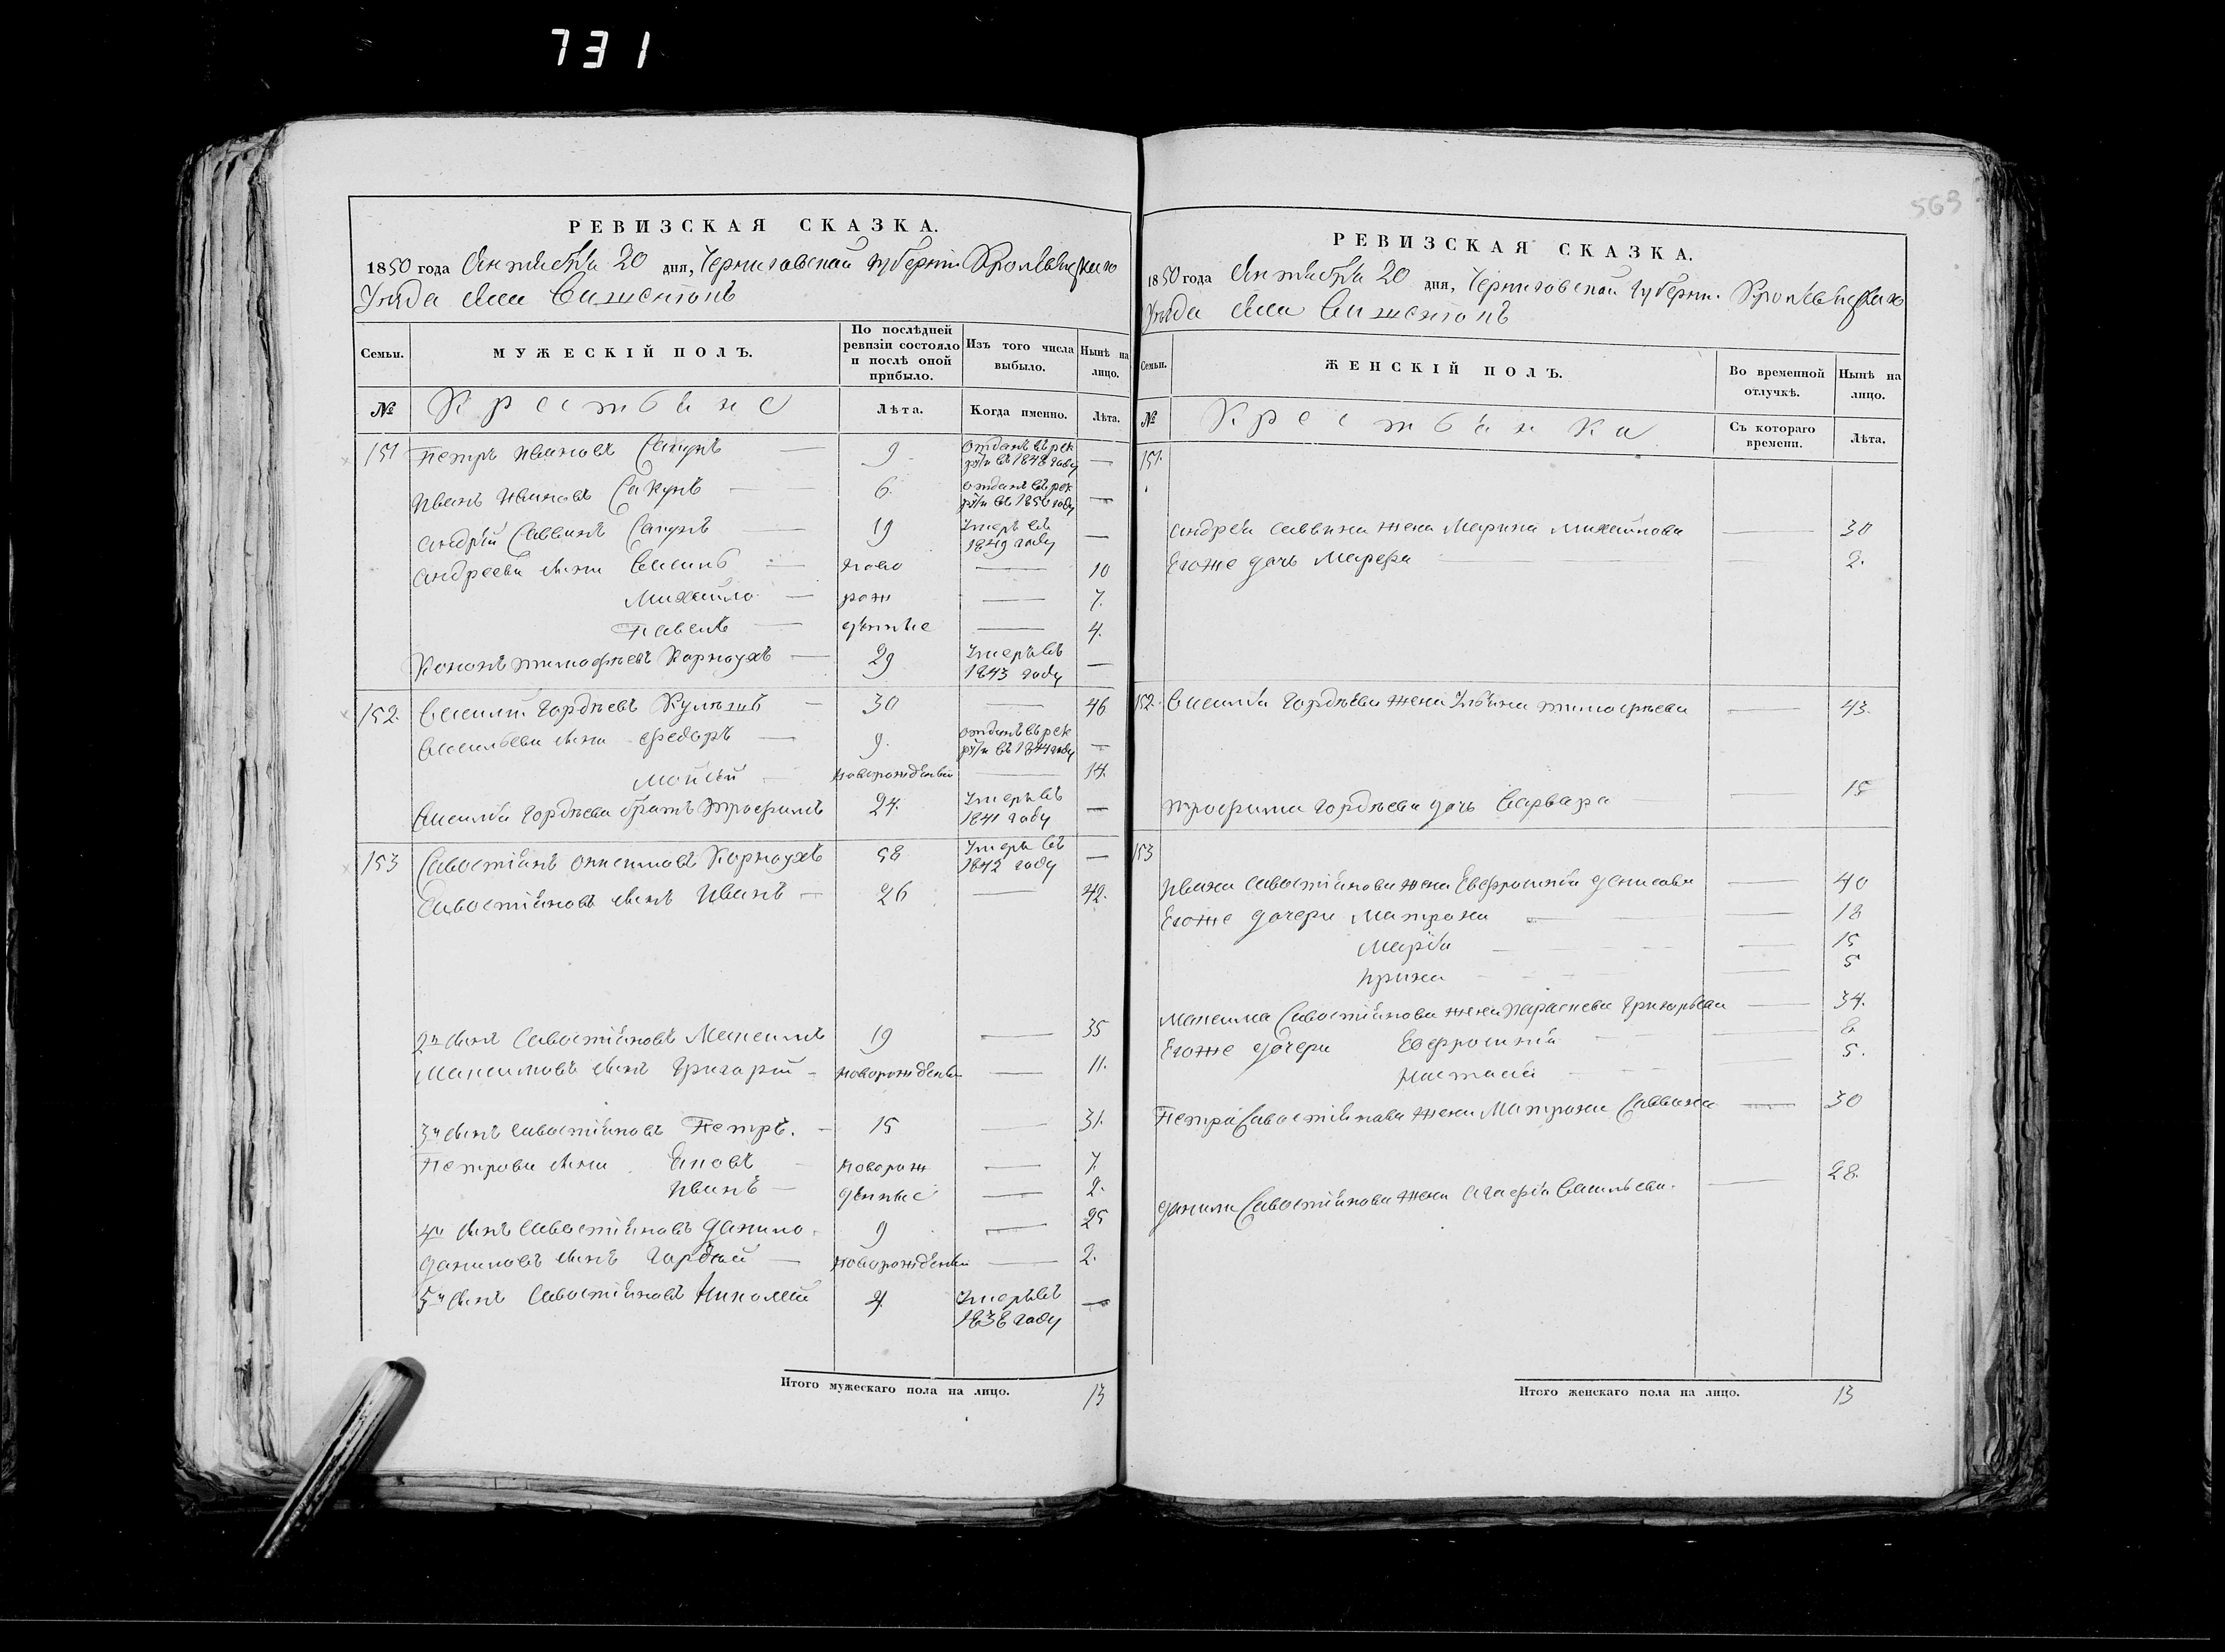 731
563
РЕВИЗСКАЯ СКАЗКА.
1850 года Октября 20 дня, Черниговской губернии Кролевецкаго
Уезда села
Семьи. МУЖЕСКІЙ ПОЛЪ. По послѣдней ревизіи состояло и послѣ оной прибыло. Изъ того числа выбыло. Нынѣ на лицо.
№ Крестьяне Лѣта. Когда именно. Лѣта.
151 Петръ Ивановъ Сакунъ — 9 Отданъ въ рекруты въ 1848 году —
Иванъ Ивановъ Сакунъ — 6 отданъ въ рекруты въ 1850 году —
Андрей Саввинъ Сакунъ — 19 Умеръ въ 1849 году —
Андреевы сыны — ново — 10
Михайло — рож — 7.
Павелъ — дѣнные — 4.
Кононъ Тимофѣевъ Корноухъ — 29 Умеръ въ 1843 году —
152. Василій Гордѣевъ — 30 — 46
Васильевы сыны Федоръ — 9. отданъ въ рекруты въ 1844 году —
Мойсей — новорожденый — 14.
Василія Гордѣева братъ Трофимъ 24. Умеръ въ 1841 году —
153 Савостіянъ Онисимовъ Корноухъ 58 Умеръ въ 1842 году —
Савостіяновъ сынъ Иванъ — 26 — 42.
2й сынъ Савостіяновъ Максимъ 19 — 35
Максимовъ сынъ Григорій — новорожденый — 11.
3й сынъ Савостіяновъ Петръ. — 15 — 31.
Петровы сыны — новорож — 7.
Иванъ — дѣнные — 2.
4й сынъ Савостіяновъ Данило. 9 — 25
Даниловъ сынъ Гордѣй — новорожденый — 2.
5й сынъ Савостіяновъ Николай Умеръ въ 1838 году —
Итого мужескаго пола на лицо. 13
РЕВИЗСКАЯ СКАЗКА.
1850 года Октября 20 дня, Черниговской губерніи Кролевецкаго
Уезда села
Семьи. ЖЕНСКІЙ ПОЛЪ. Во временной отлучкѣ. Нынѣ на лицо.
№ Крестьянки Съ котораго времени. Лѣта.
151.
Андрея Саввина жена Марина Михайлова — 30
Егоже дочь Марфа — 2.
152. Василія Гордѣева жена Ульяна Тимофѣева — 43.
Трофима Гордѣева дочь Варвара — 15
153
Ивана Савостіянова жена Евфросинія Денисова — 40
Егоже дочери Матрона — 18
Марія — 15
Ирина — 5
Максима Савостіянова жена Параскева Григорьева — 34.
Егоже дочери Евфросинія — 8
Настасія — 5.
Петра Савостіянова жена Матрона Саввина — 30
Данила Савостіянова жена Агафія Васильева. — 28.
Итого женскаго пола на лицо. 13